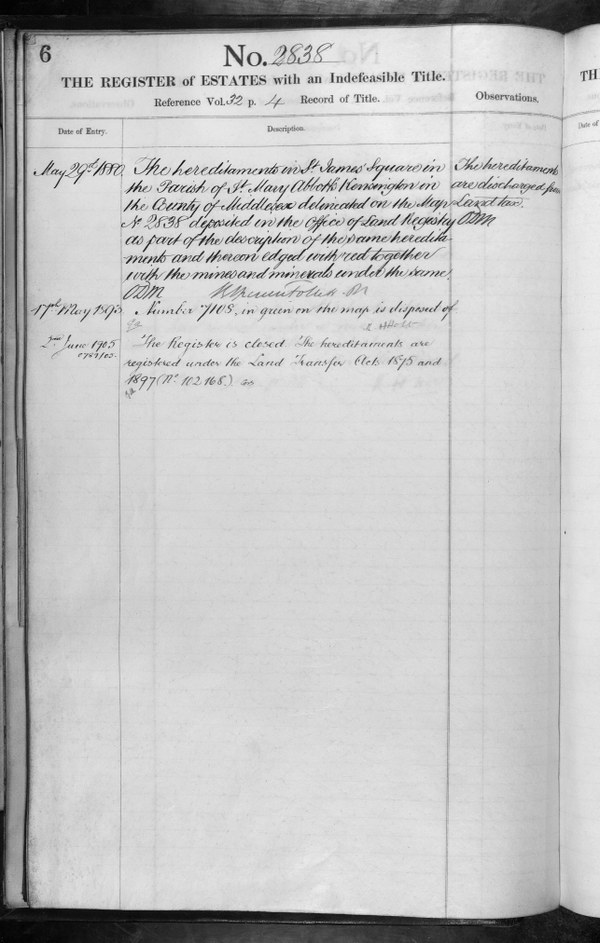 6
No. 2838
THE REGISTER of ESTATES with an Indefeasible Title.
Reference Vol. 32 p. 4 Record of Title.
Observations.
Date of Entry.
Description.
May 29th 1880
The hereditaments in St. James Square in
the Parish of St. Mary Abbotts Kensington in
the County of Middlesex delineated on the Map
No 2838 deposited in the Office of Land Registry
as part of the description of the same heredita-
ments and thereon edged with red together
with the mines and minerals under the same.
ODM
The hereditaments
are discharged from
Land tax.
ODM
17th May 1893
Number 7108, in green on the map is disposed of
2nd June 1905
The Register is closed The hereditaments are
registered under the Land Transfer Acts 1875 and
1897 (No 102168.)
TH
Date of